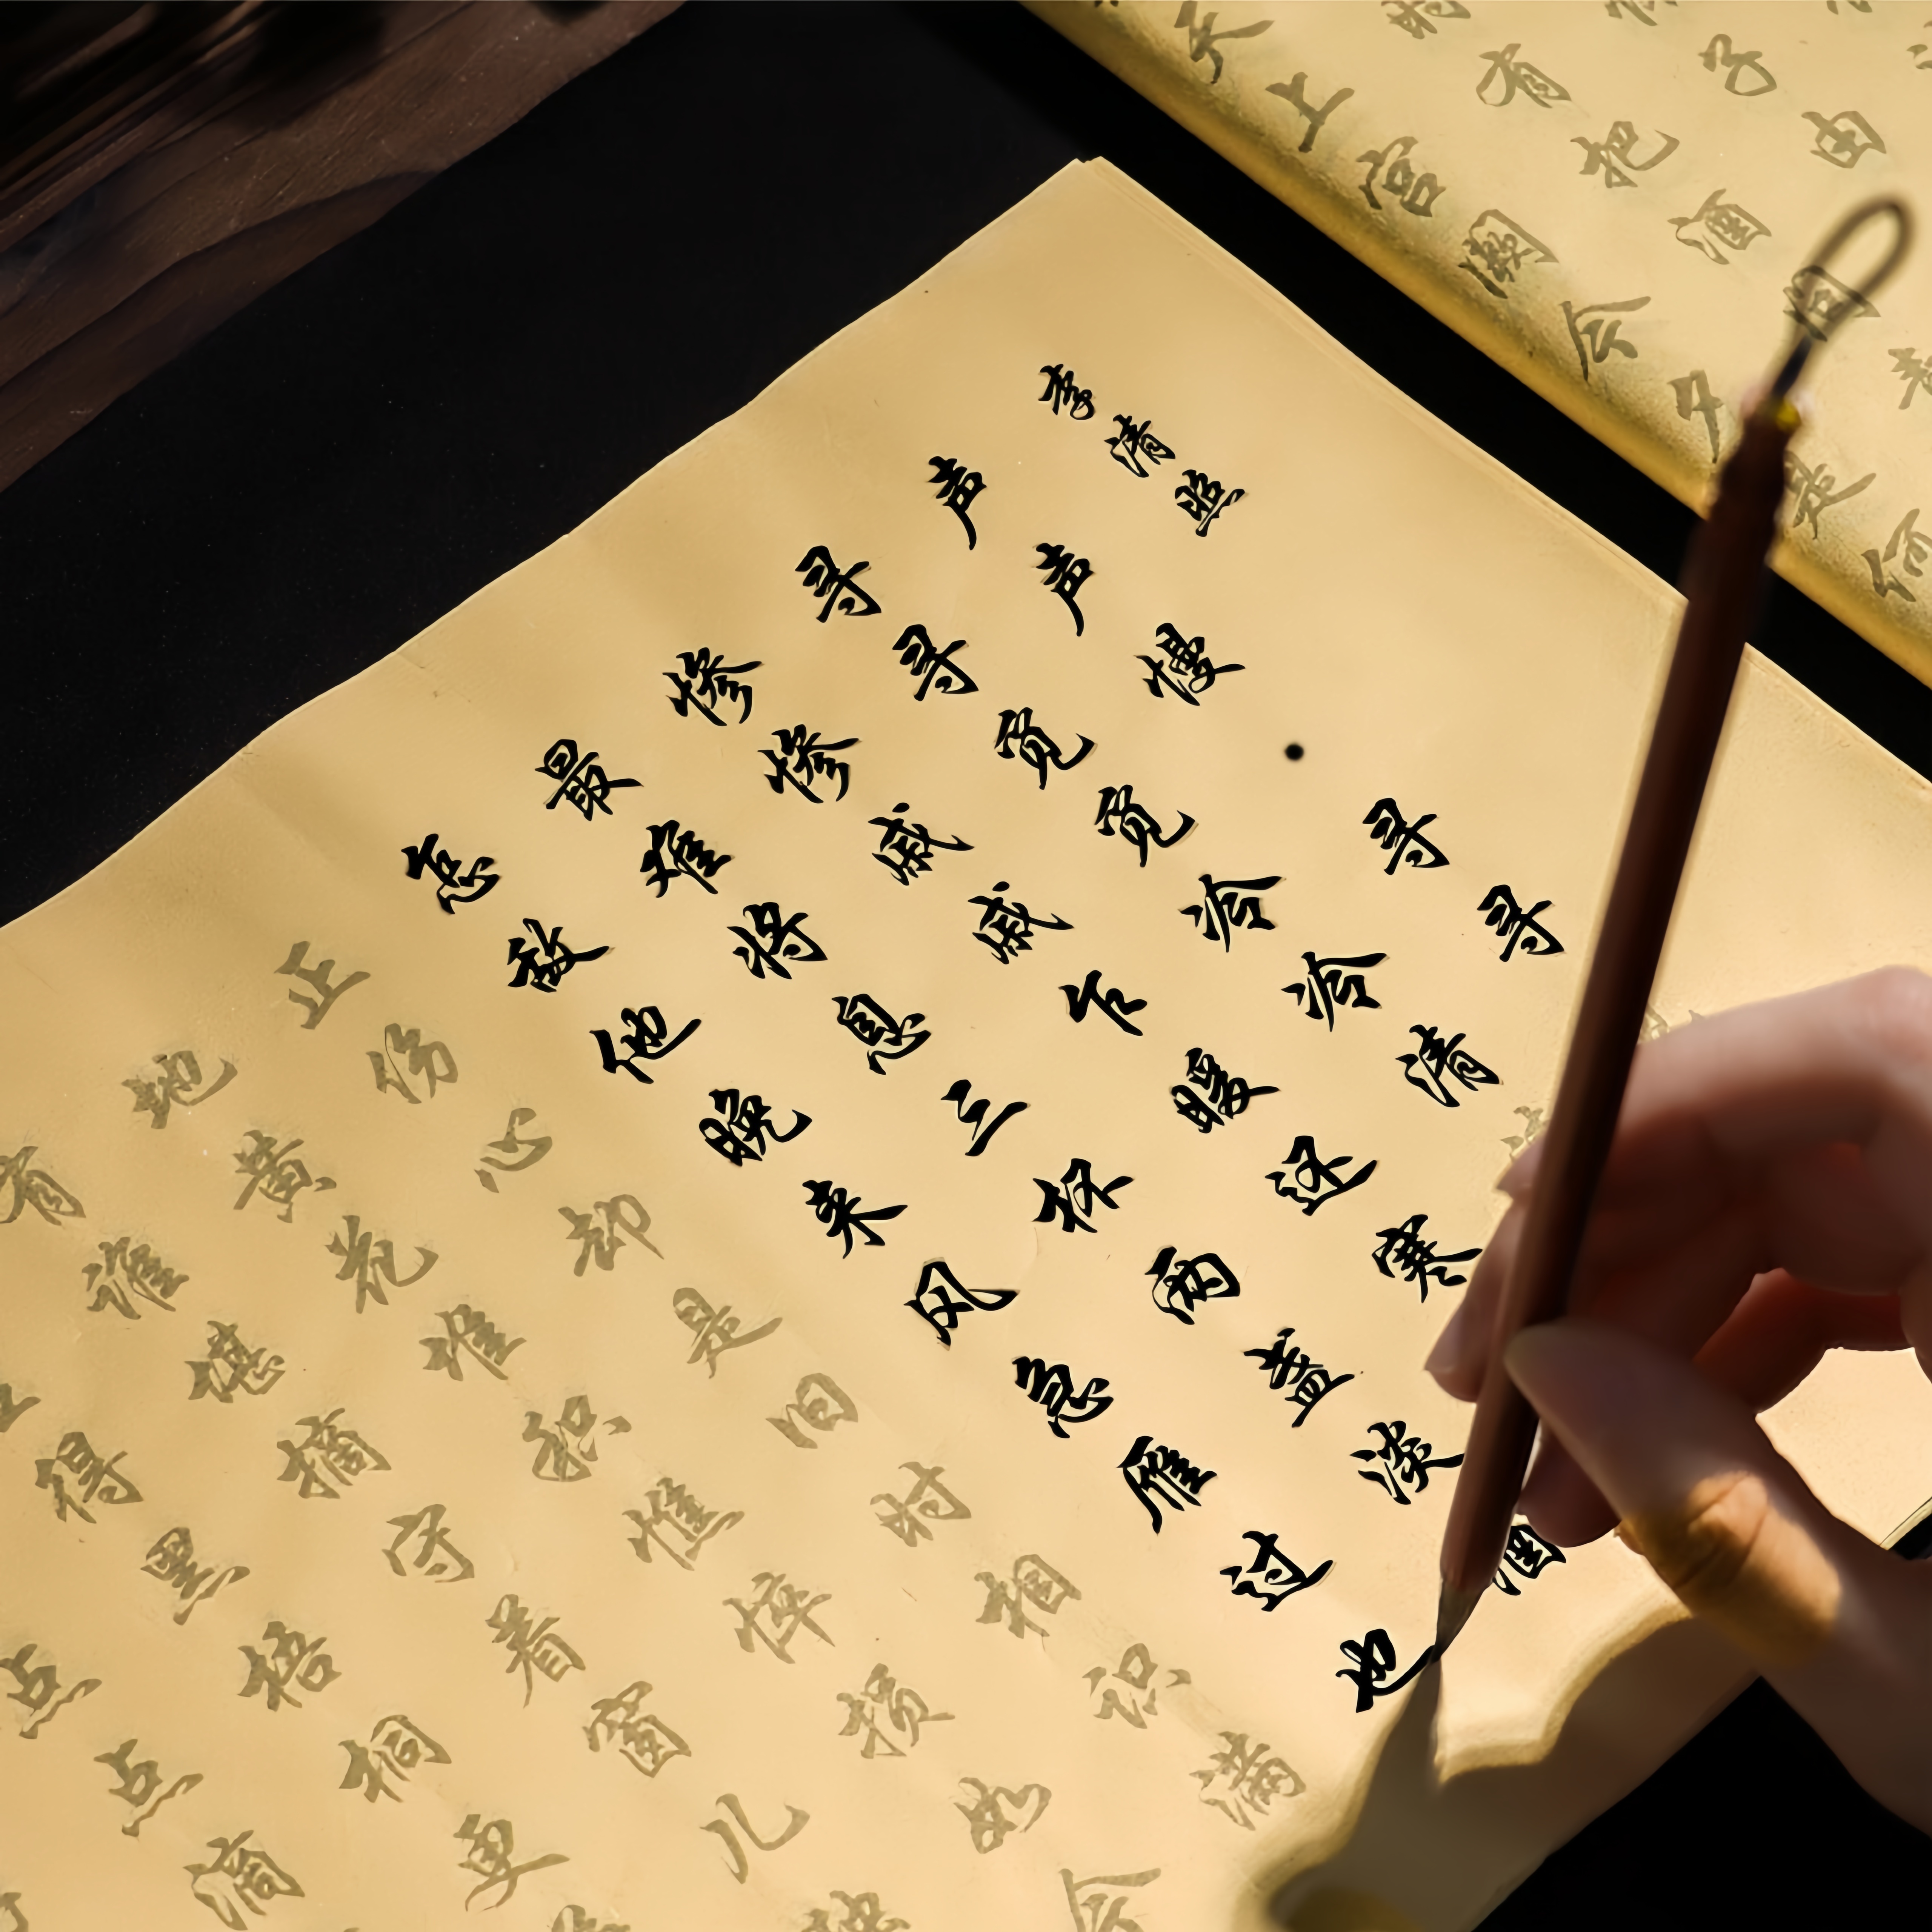 子由
时有把酒问青
天上宫阙今夕是何
李清照
声声慢·寻寻
寻寻觅觅冷冷清
惨惨戚戚乍暖还寒
最难将息三杯两盏淡酒
怎敌他晚来风急雁过也
正伤心却是旧时相识满
地黄花堆积憔悴损如今
有谁堪摘守着窗儿独
得黑梧桐更
点点滴